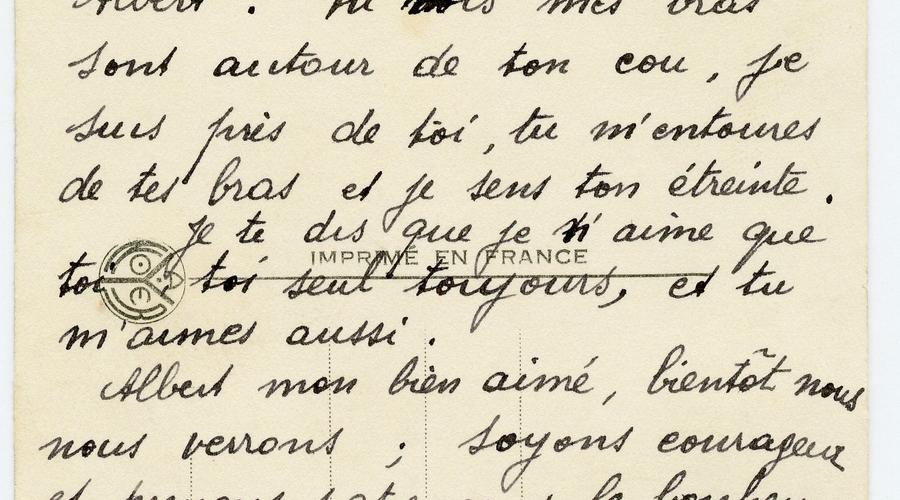 Albert . Tu vois mes bras
sont autour de ton cou, je
suis près de toi, tu m'entoures
de tes bras et je sens ton étreinte.
Je te dis que je n'aime que
IMPRIMÉ EN FRANCE
toi toi seul toujours, et tu
m'aimes aussi.
Albert mon bien aimé, bientôt nous
nous verrons ; soyons courageux
et prenons patience : le bonheur